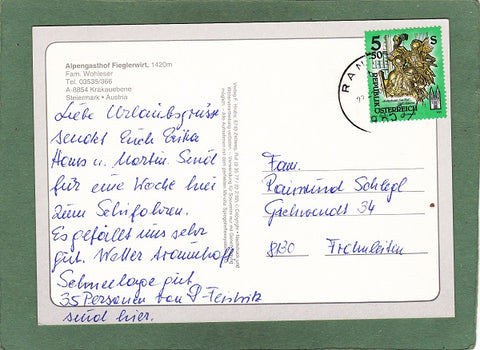 Alpengasthof Fieglerwirt, 1420m
Fam. Wohleser
Tel. 03535/366
A-8854 Krakauebene
Steiermark • Austria
Liebe Urlaubsgrüsse
sendet Euch Erika
Hans u. Martin. Sind
für eine Woche hier
zum Schifahren.
Es gefällt uns sehr
gut. Wetter traumhaft
Schneelage gut
35 Personen von P-Feistritz
sind hier.
5 S
50
REPUBLIK
ÖSTERREICH
RAN
Fam.
Raimund Schlegl
Gschwendt 34
8130 Frohnleiten